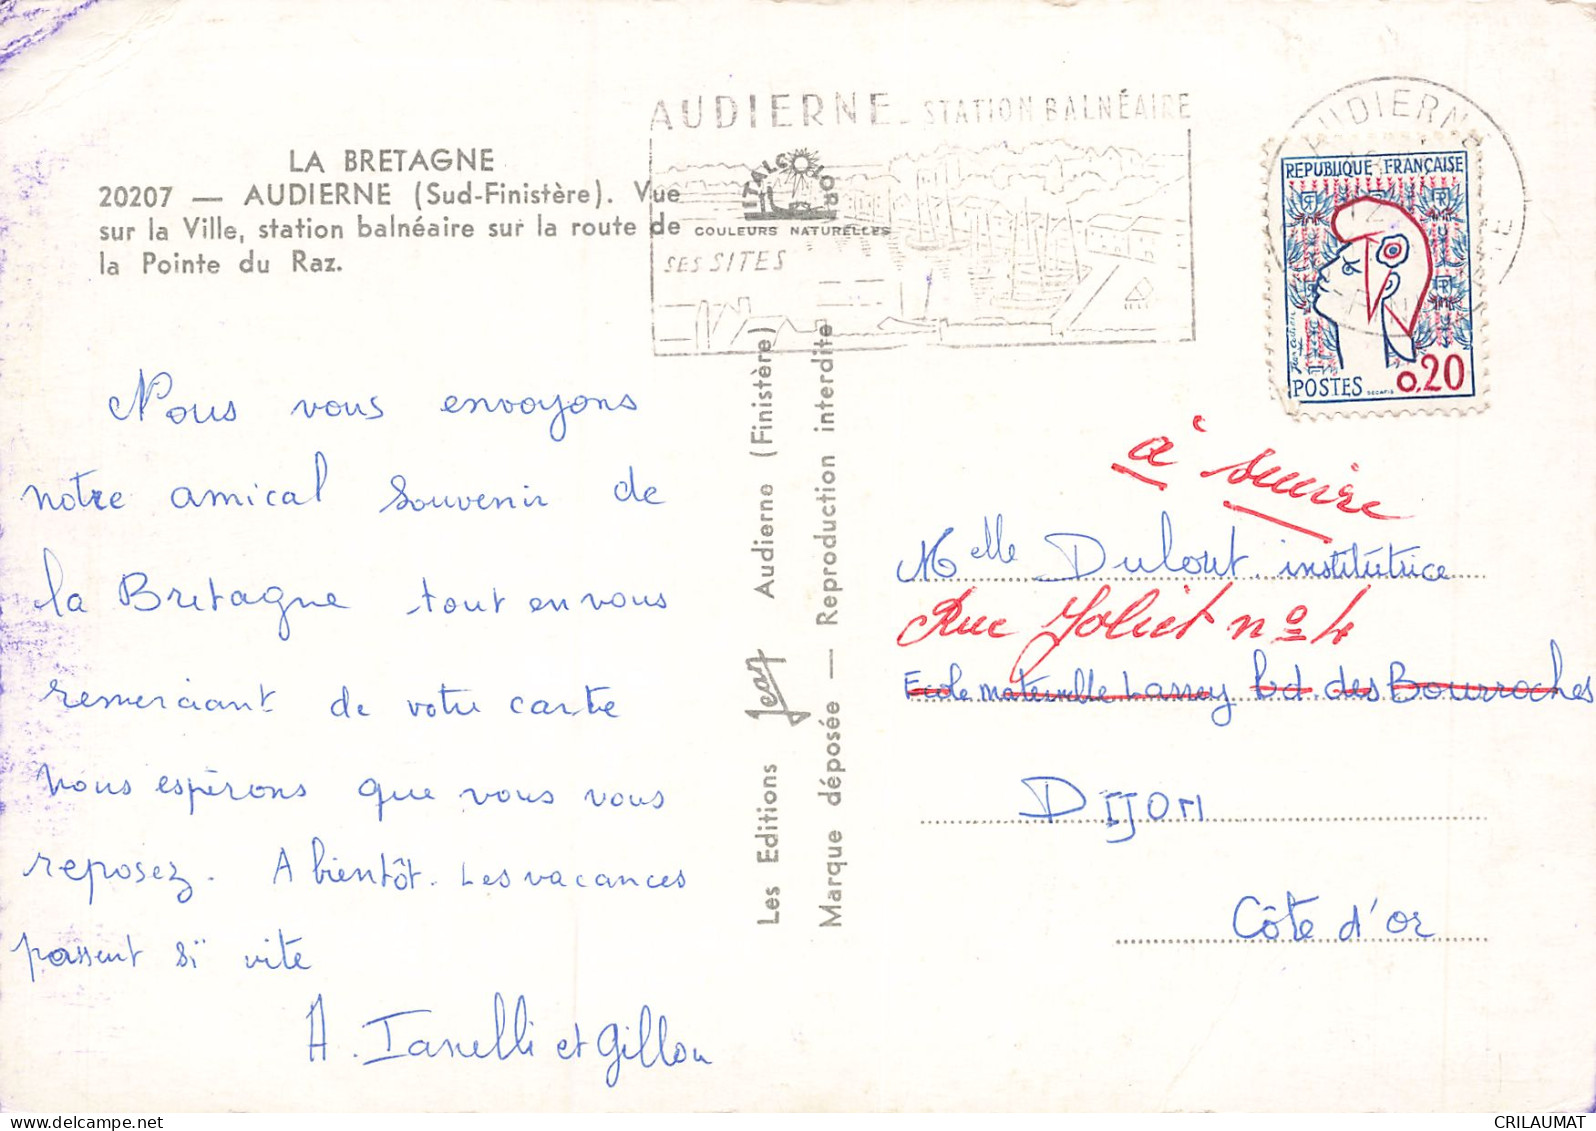 LA BRETAGNE
20207 — AUDIERNE (Sud-Finistère). Vue
sur la Ville, station balnéaire sur la route de
la Pointe du Raz.
AUDIERNE - STATION BALNÉAIRE
ITALCOLOR
COULEURS NATURELLES
SES SITES
AUDIERNE
REPUBLIQUE FRANÇAISE
POSTES 0,20
Nous vous envoyons
notre amical souvenir de
la Bretagne tout en vous
remerciant de votre carte
nous espérons que vous vous
reposez. A bientôt. Les vacances
passent si vite
A. Ianelli et Gillou
Les Editions Jean Audierne (Finistère)
Marque déposée — Reproduction interdite
à suivre
Melle Dulout institutrice
Rue Joliet nº 4
Ecole maternelle Larrey bd des Bourroches
DIJON
Côte d'or
CRILAUMAT